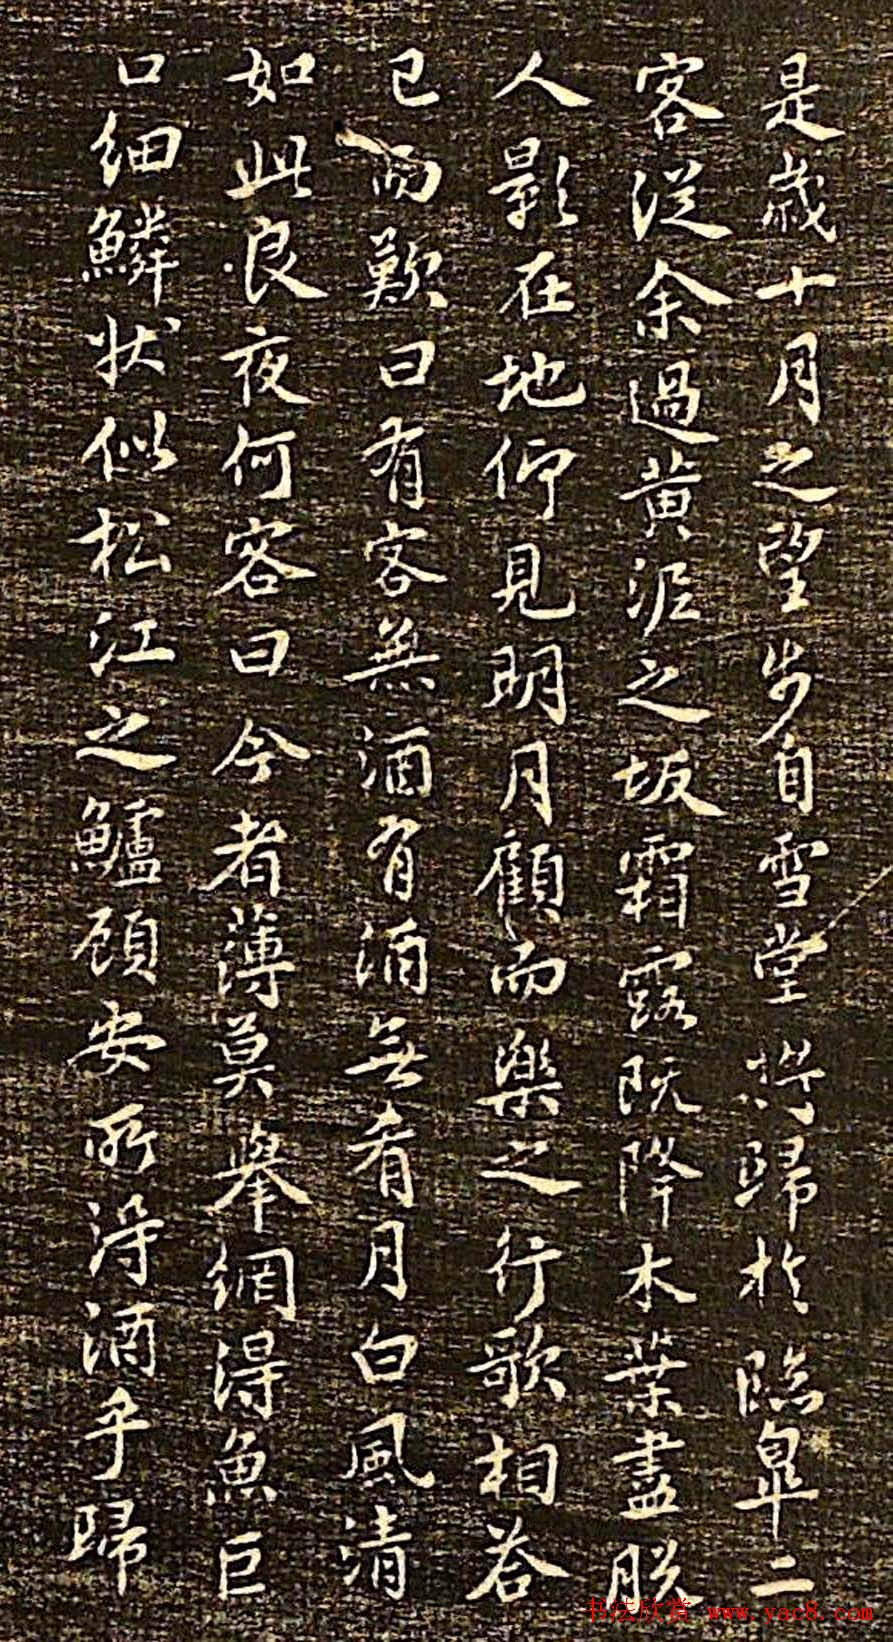 是歲十月之望步自雪堂將歸於臨皐二
客從余過黃泥之坂霜露既降木葉盡脫
人影在地仰見明月顧而樂之行歌相荅
已而歎曰有客無酒有酒無肴月白風清
如此良夜何客曰今者薄莫舉網得魚巨
口細鱗狀似松江之鱸顧安所得酒乎歸
书法欣赏 www.yac8.com